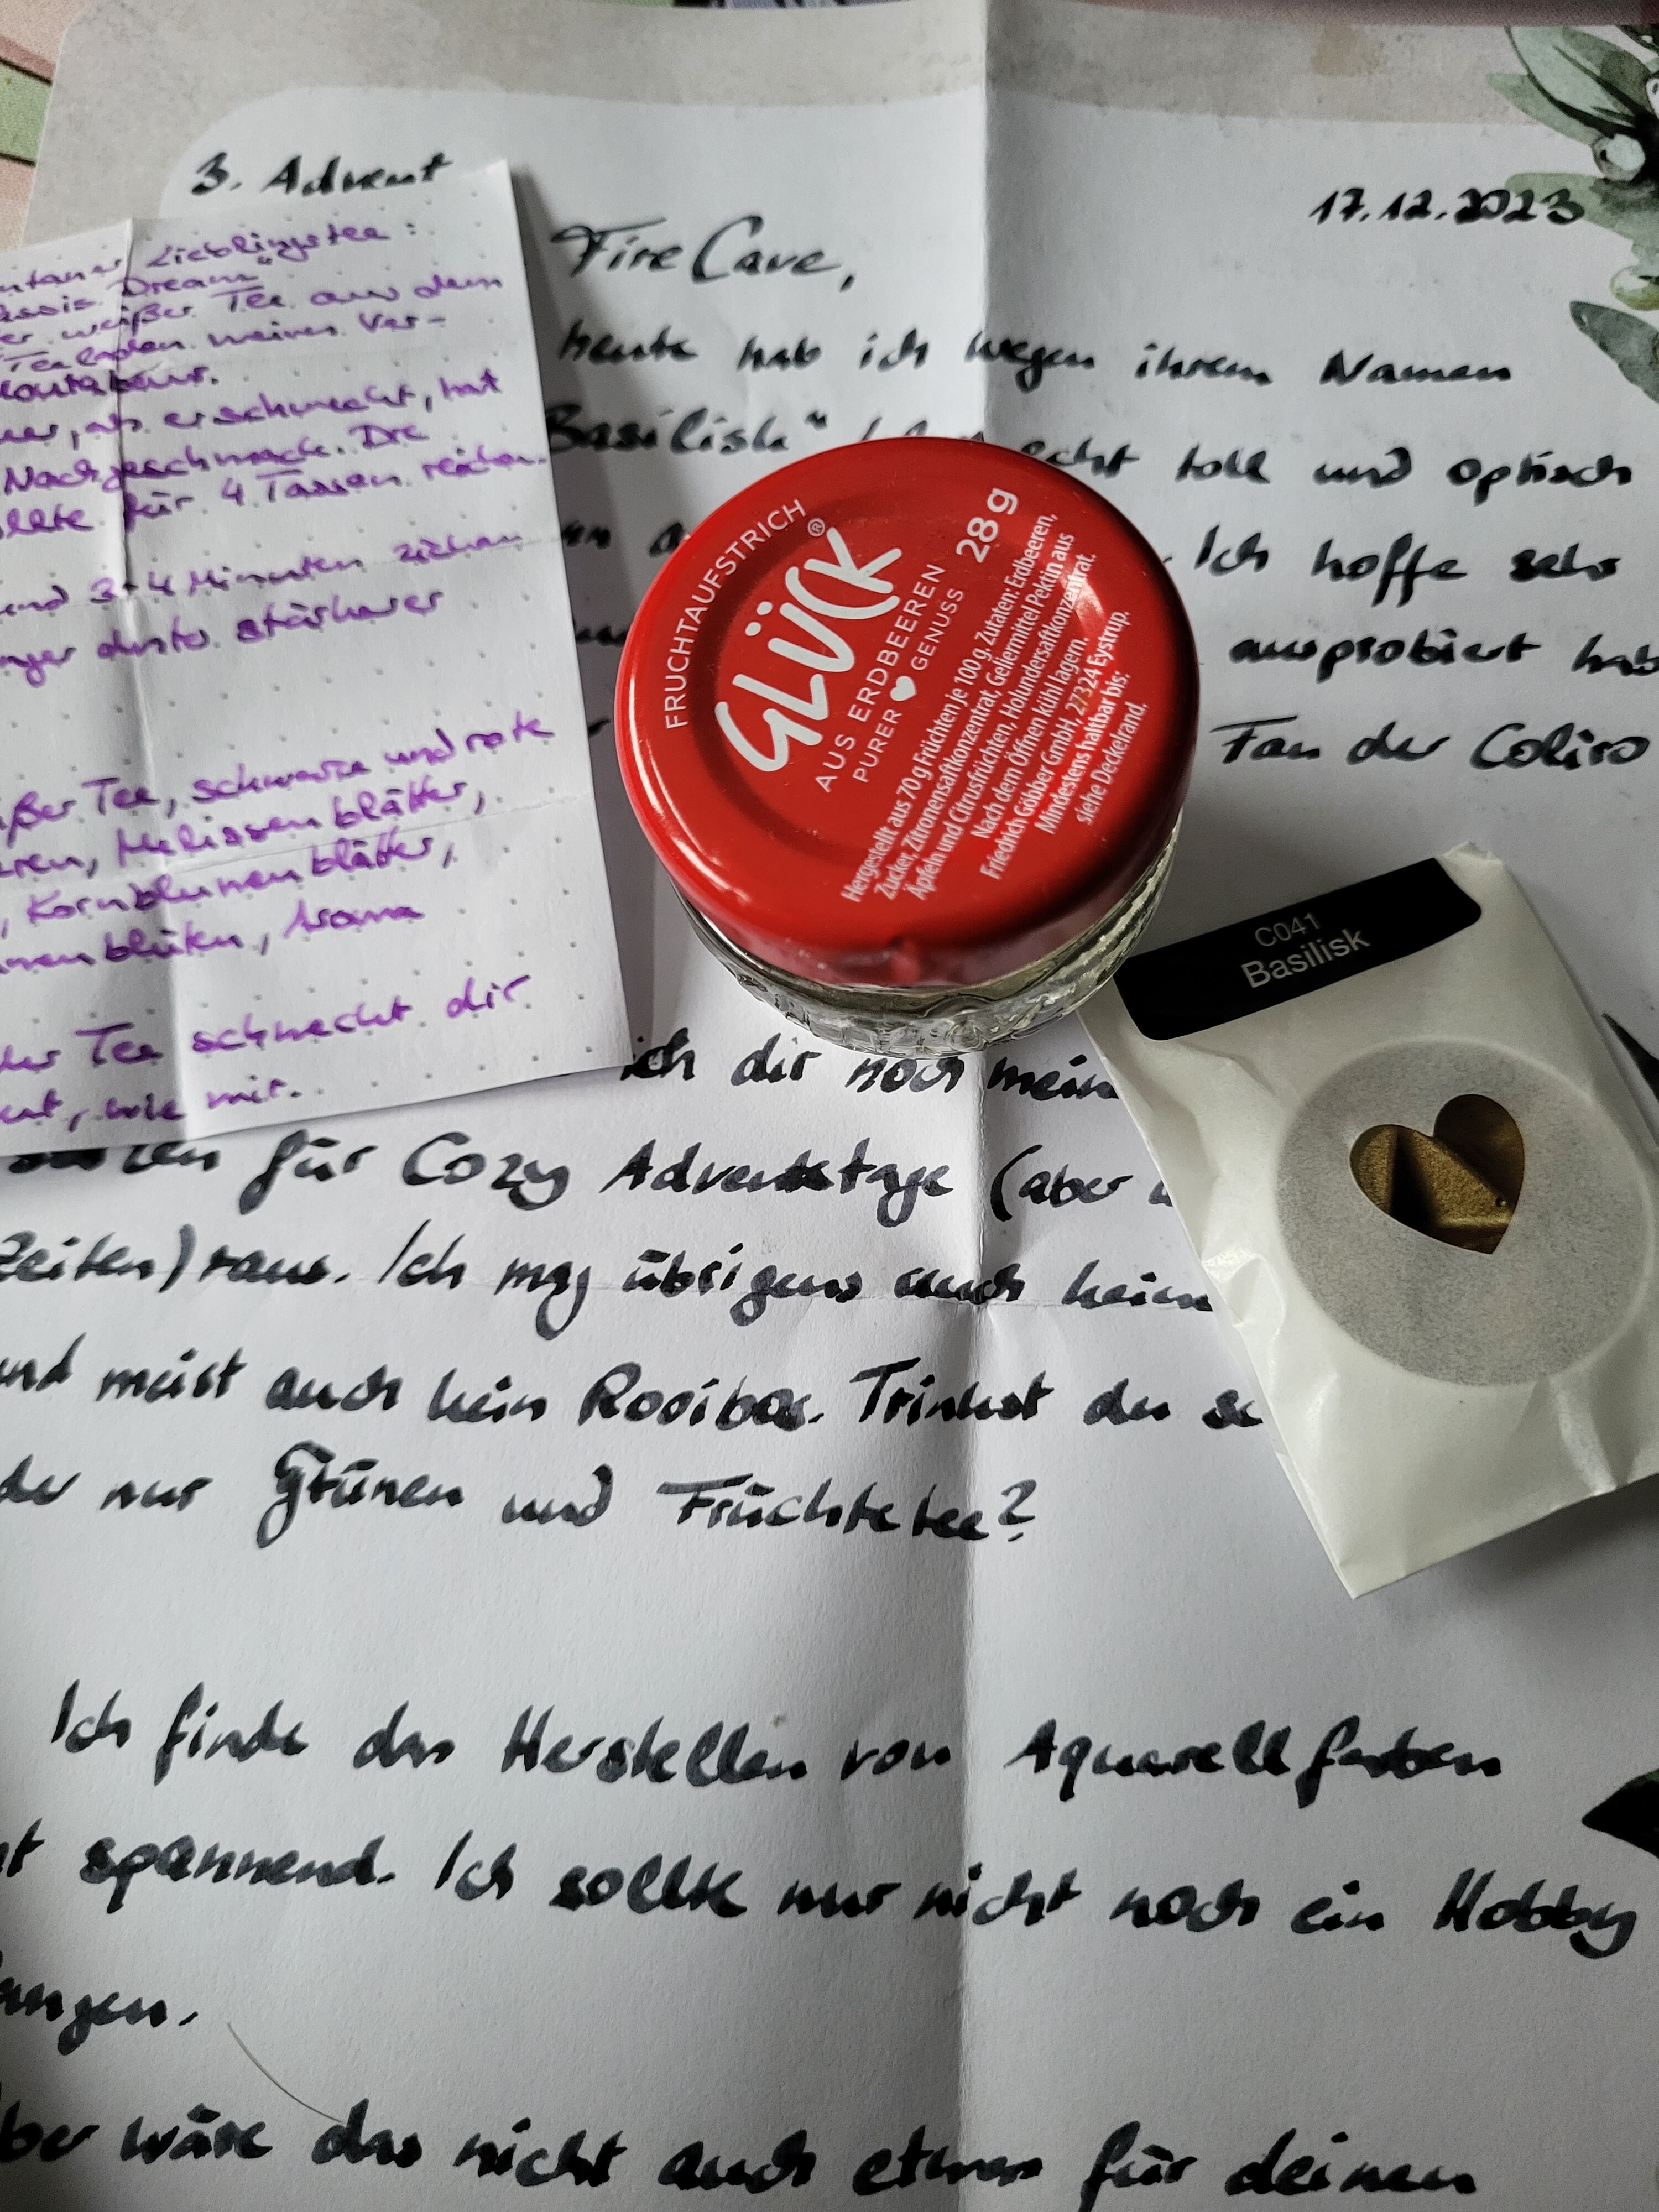 3. Advent
17.12.2023
Fire Cave,
heute hab ich wegen ihrem Namen
Basilisk" echt toll und optisch
Ich hoffe sehr
ausprobiert hab
Fan der Coliro
ich dir noch mein
für Cozy Adventstage (aber
Zeiten) raus. Ich mag übrigens auch kein
und meist auch kein Rooibos. Trinkst du
nur Grünen und Früchtetee?
Ich finde das Herstellen von Aquarellfarben
spannend. Ich sollte nur nicht noch ein Hobby
wäre das nicht auch etwas für deinen
Lieblingstee:
Dream"
weißer Tee aus dem
Teeladen meines Ver-
er schmeckt, hat
Nachgeschmack. Die
für 4 Tassen reichen.
3-4 Minuten ziehen
desto stärker
Tee, schwarze und rote
Melissenblätter,
Kornblumenblätter,
Aroma
der Tee schmeckt dir
wie mir.
FRUCHTAUFSTRICH
GLÜCK®
AUS ERDBEEREN
PURER GENUSS
28 g
Hergestellt aus 70 g Früchten je 100 g. Zutaten: Erdbeeren,
Zucker, Zitronensaftkonzentrat, Geliermittel Pektin aus
Äpfeln und Citrusfrüchten, Holundersaftkonzentrat.
Nach dem Öffnen kühl lagern.
Friedrich Göbber GmbH, 27324 Eystrup.
Mindestens haltbar bis:
siehe Deckelrand.
C041
Basilisk